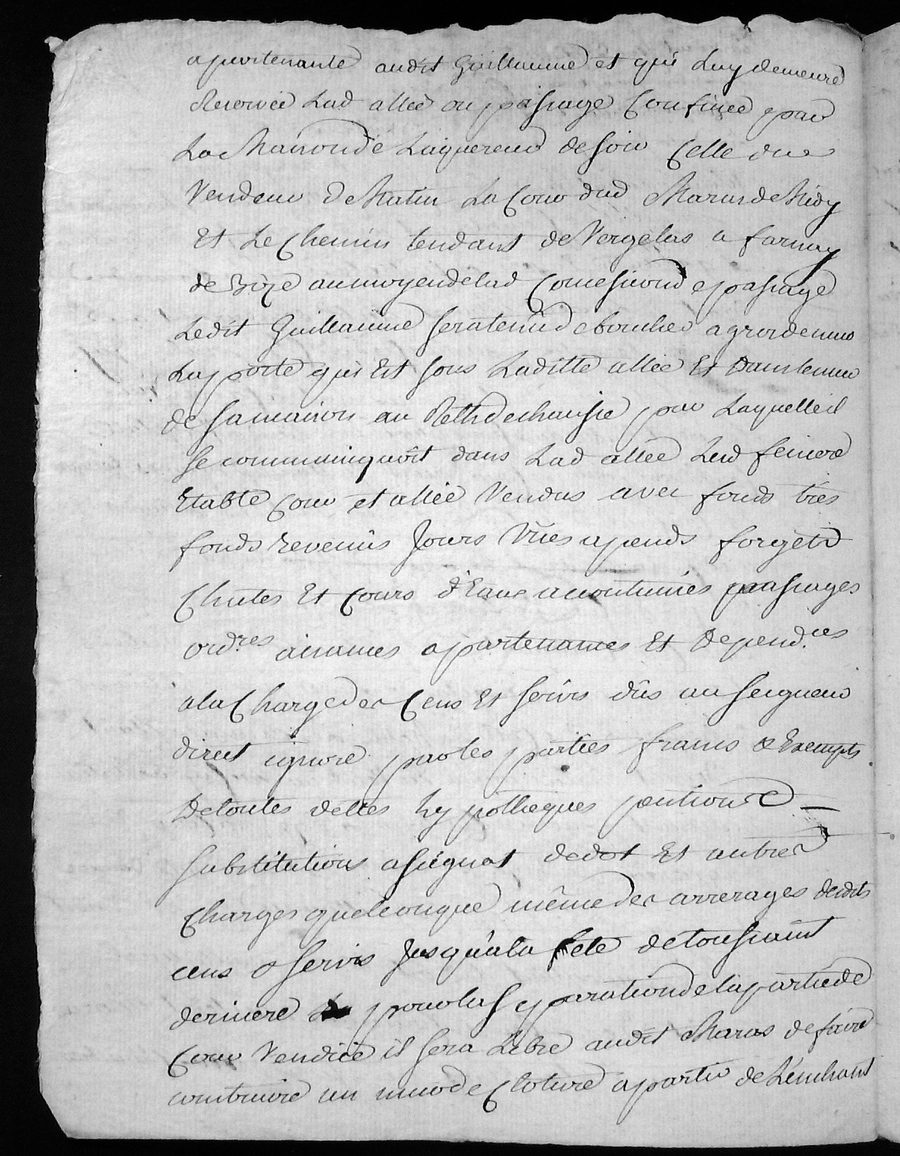 apartenante audit Guillaume et qui Luy demeure
Reservée Lad allée ou passage Confinée par
La Maison de Laquereur de soir Celle du
Vendeur De Matin La Cour dud Maras de Midy
Et Le Chemin tendant de Vergelas a farnay
de Bize aumoyen delad Concession de passage
Ledit Guillaume sera tenu de boucher a gros de mur
La porte qui Est sous Laditte allée Et
de sa maison au Rethdechaussée par Laquelle il
se communiquoit dans Lad allée Lesd feniere
Etable Cour et allée Vendus avec fonds très
fonds revenus Jours Vües apends forgets
Chutes Et Cours d'Eaux acoutumés passages
ordres aisances apartenances Et Dependces
ala Charge des Cens Et servis dûs au seigneur
direct ignoré par les parties francs & Exempts
De toutes dettes hypotheques pention
substitutions assignat de dot Et autres
Charges quelconque même des arrerages desdits
cens & servis Jusqu'ala fete de toussaint
derniere pour la separation de la partie de
Cour Vendüe il sera Libre audit Maras de faire
construire un mur de Cloture a partir de